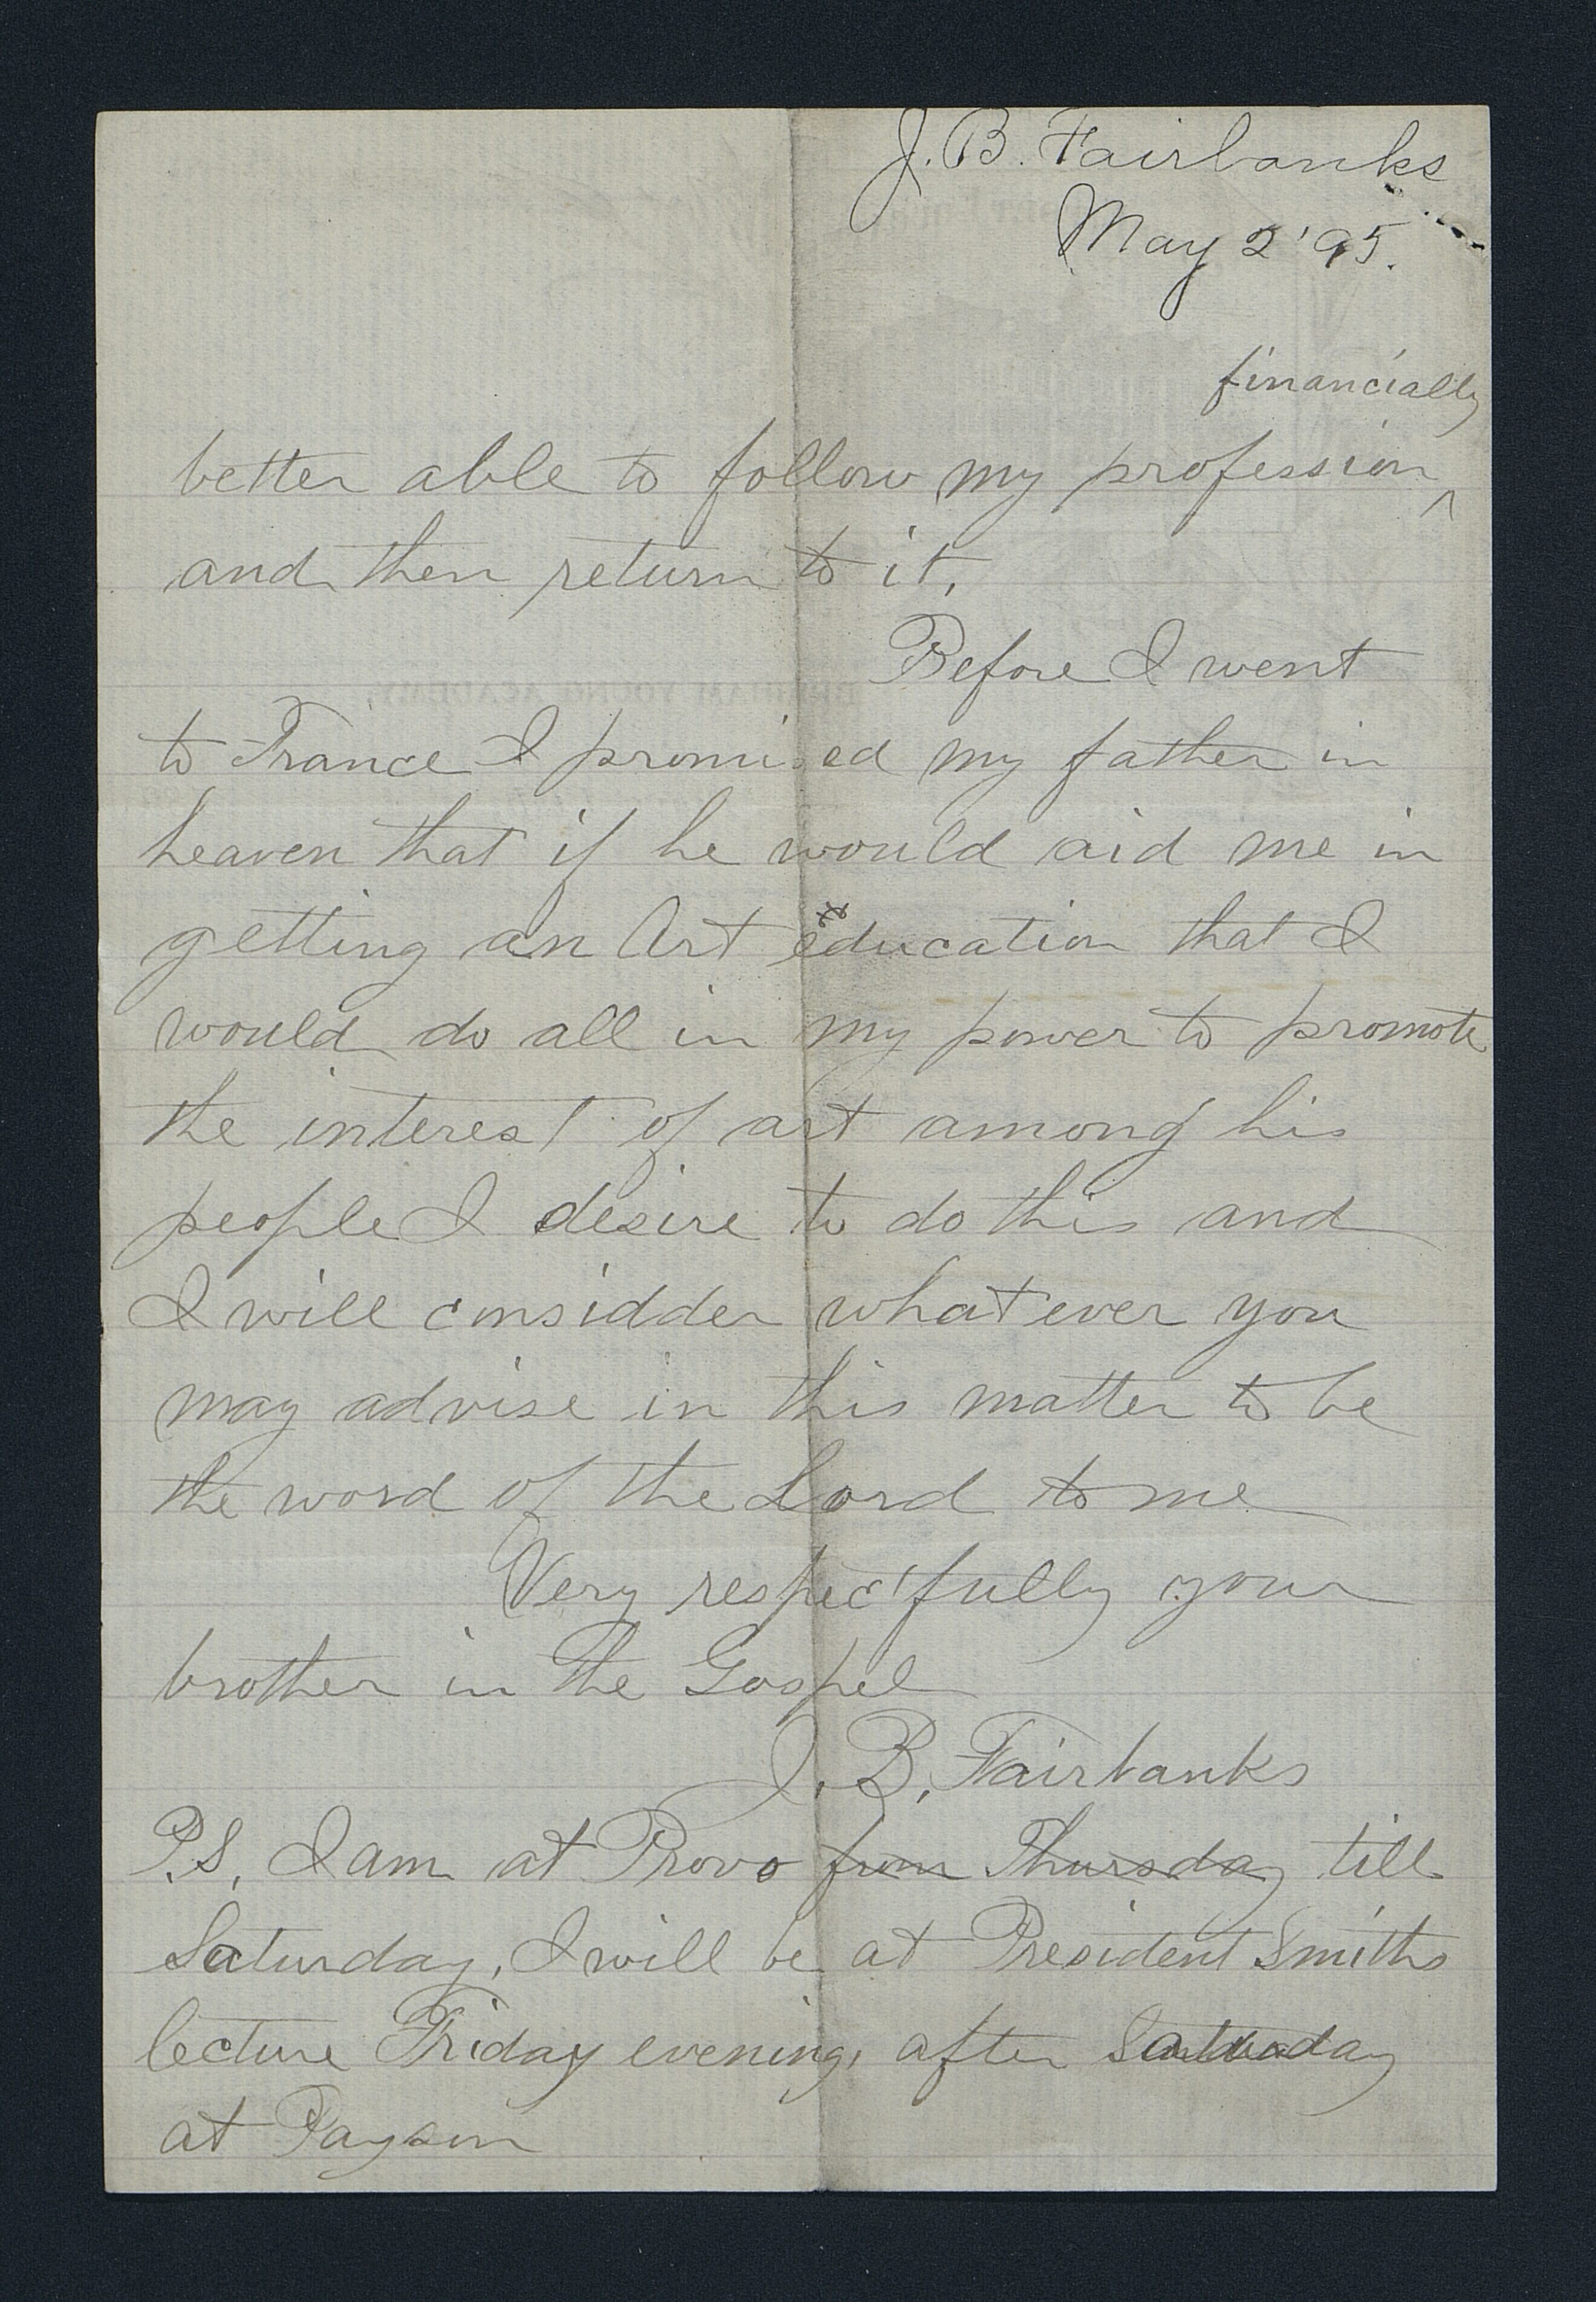 J. B. Fairbanks
May 2 '95.
financially
better able to follow my profession ^
and then return to it.
Before I went
to France I promised my father in
heaven that if he would aid me in
getting an Art education that I
would do all in my power to promote
the interest of art among his
people I desire to do this and
I will considder whatever you
may advise in this matter to be
the word of the Lord to me
Very respectfully your
brother in the Gospel
J. B. Fairbanks
P.S. I am at Provo from Thursday till
Saturday, I will be at President Smiths
lecture Friday evening, after Saturday
at Payson